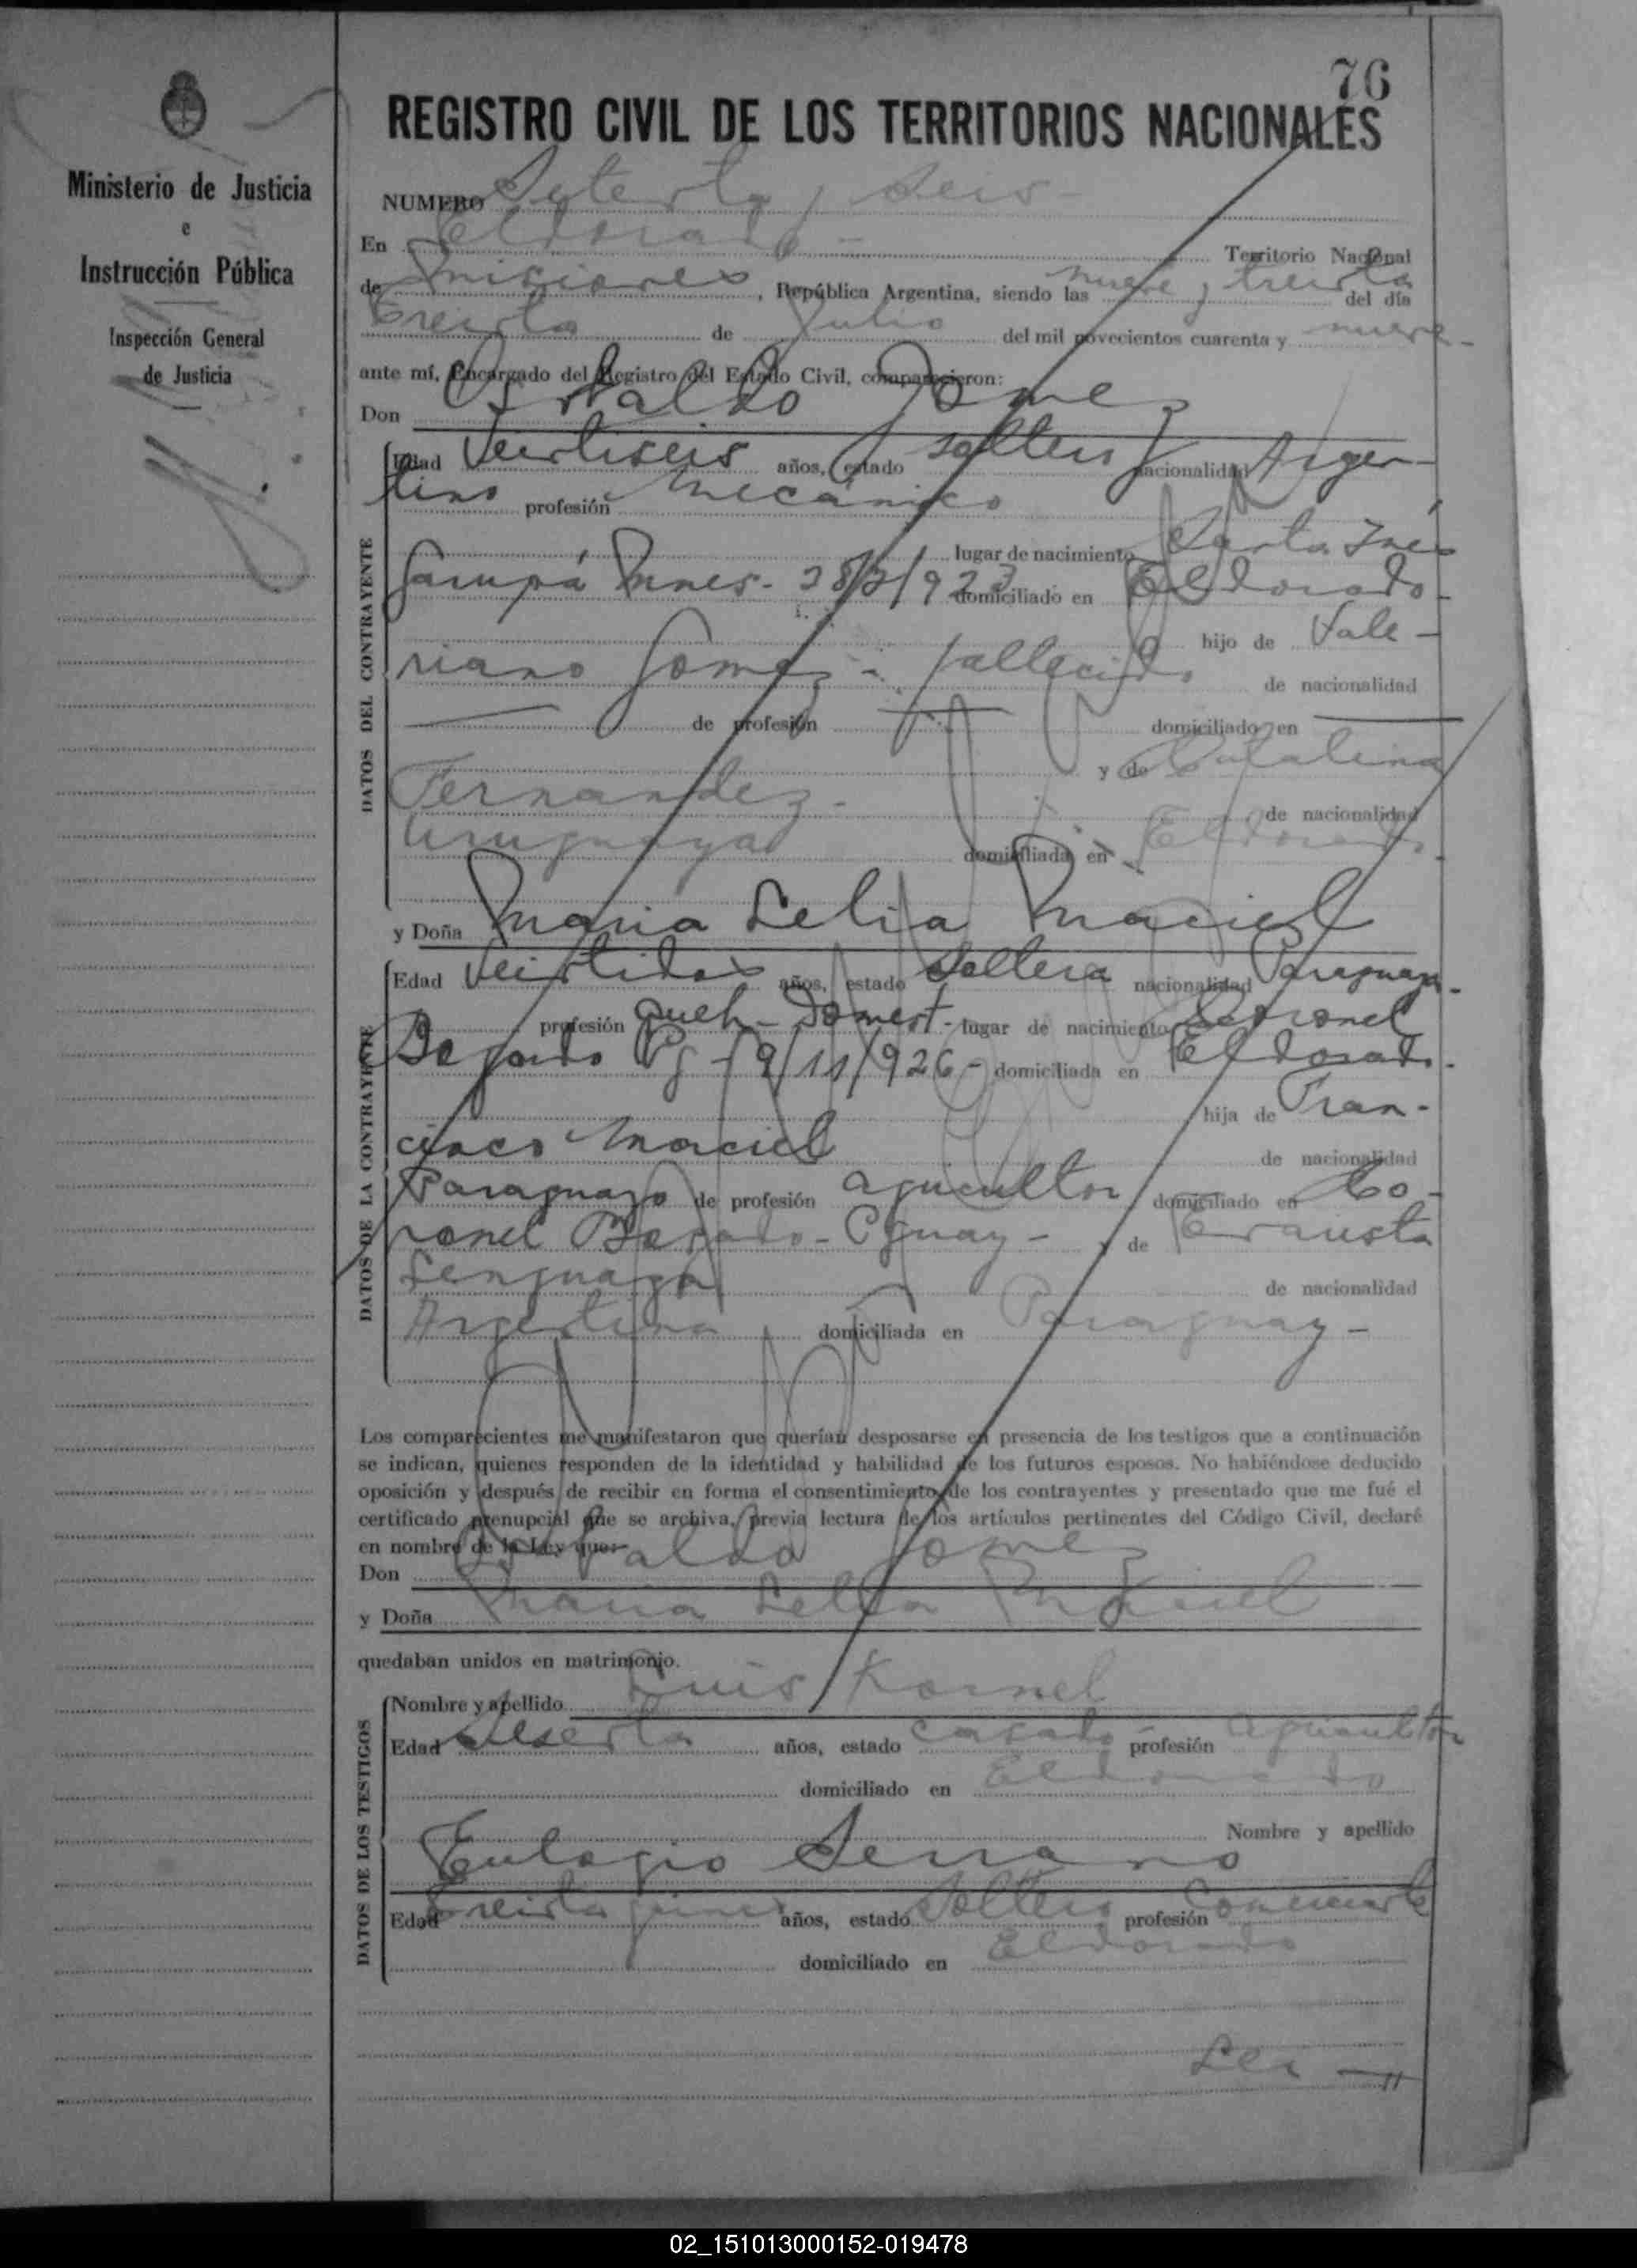 76
REGISTRO CIVIL DE LOS TERRITORIOS NACIONALES
Ministerio de Justicia
e
Instrucción Pública
Inspección General
de Justicia
NUMERO Setenta y seis
En Eldorado - Territorio Nacional
de Misiones, República Argentina, siendo las nueve y treinta del día
Treinta de Julio del mil novecientos cuarenta y nueve -
ante mí, Encargado del Registro del Estado Civil, comparecieron:
Don Osvaldo Gomez
DATOS DEL CONTRAYENTE
Edad Veintiseis años, estado soltero nacionalidad Argen-
tino profesión mecánico
lugar de nacimiento Santa Inés
Garupá Mnes - 28/2/923 domiciliado en Eldorado -
hijo de Vale-
riano Gomez - fallecido de nacionalidad
de profesión domiciliado en
y de Catalina
Fernandez - de nacionalidad
Uruguaya domiciliada en Eldorado.
y Doña Maria Lelia Maciel
DATOS DE LA CONTRAYENTE
Edad Veintidos años, estado Soltera nacionalidad Paraguaya -
profesión Queh - Domest - lugar de nacimiento Coronel
Bogado Pg - 9/11/926 - domiciliada en Eldorado.
hija de Fran-
cisco Maciel de nacionalidad
Paraguayo de profesión agricultor domiciliado en Co-
ronel Bogado - Pguay - y de Crausta
Lenguaza de nacionalidad
Argentina domiciliada en Paraguay -
Los comparecientes me manifestaron que querían desposarse en presencia de los testigos que a continuación
se indican, quienes responden de la identidad y habilidad de los futuros esposos. No habiéndose deducido
oposición y después de recibir en forma el consentimiento de los contrayentes y presentado que me fué el
certificado prenupcial que se archiva, previa lectura de los artículos pertinentes del Código Civil, declaré
en nombre de la Ley que:
Don Osvaldo Gomez
y Doña Maria Lelia Maciel
quedaban unidos en matrimonio.
DATOS DE LOS TESTIGOS
Nombre y apellido Luis Kornel
Edad Sesenta años, estado casado - profesión agricultor
domiciliado en Eldorado
Nombre y apellido
Eulogio Serrano
Edad Treinta años, estado Soltero profesión Comerciante
domiciliado en Eldorado
Lei
02_151013000152-019478